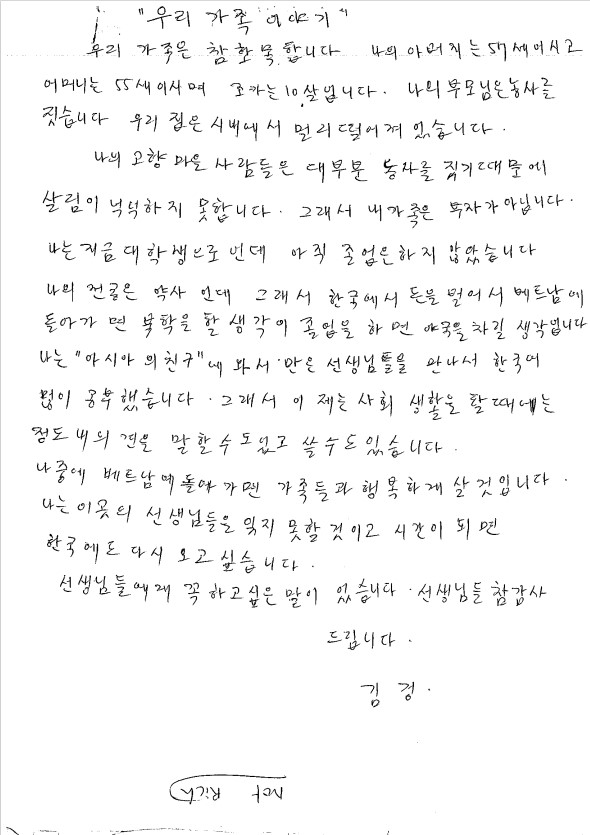 "우리 가족 이야기"
우리 가족은 참 화목 합니다 나의 아버지는 57세이시고
어머니는 55세이시며 조카는 10살입니다. 나의 부모님은 농사를
짓습니다 우리 집은 시내에서 멀리 떨어져 있습니다.
나의 고향 마을 사람들은 대부분 농사를 짓기 때문에
살림이 넉넉하지 못합니다. 그래서 내 가족은 부자가 아닙니다.
나는 지금 대학생으로 인데 아직 졸업은 하지 않았습니다
나의 전골은 약사 인데 그래서 한국에서 돈을 벌어서 베트남에
돌아가 면 복학을 할 생각이 졸업을 하면 약국을 차길 생각입니다
나는 "아시아의 친구"에 와서 만은 선생님들을 만나서 한국어
많이 공부했습니다. 그래서 이 제는 사회 생활을 할 때에는
정도 내의 견을 말할 수 도 있고 쓸 수도 있습니다.
나중에 베트남에 돌아 가면 가족들과 행복하게 살 것입니다.
나는 이곳의 선생님들을 잊지 못할 것이고 시간이 되면
한국에도 다시 오고 싶습니다.
선생님들에게 꼭 하고싶은 말이 있습니다. 선생님들 참 감사
드립니다.
김 경.
Not Rich